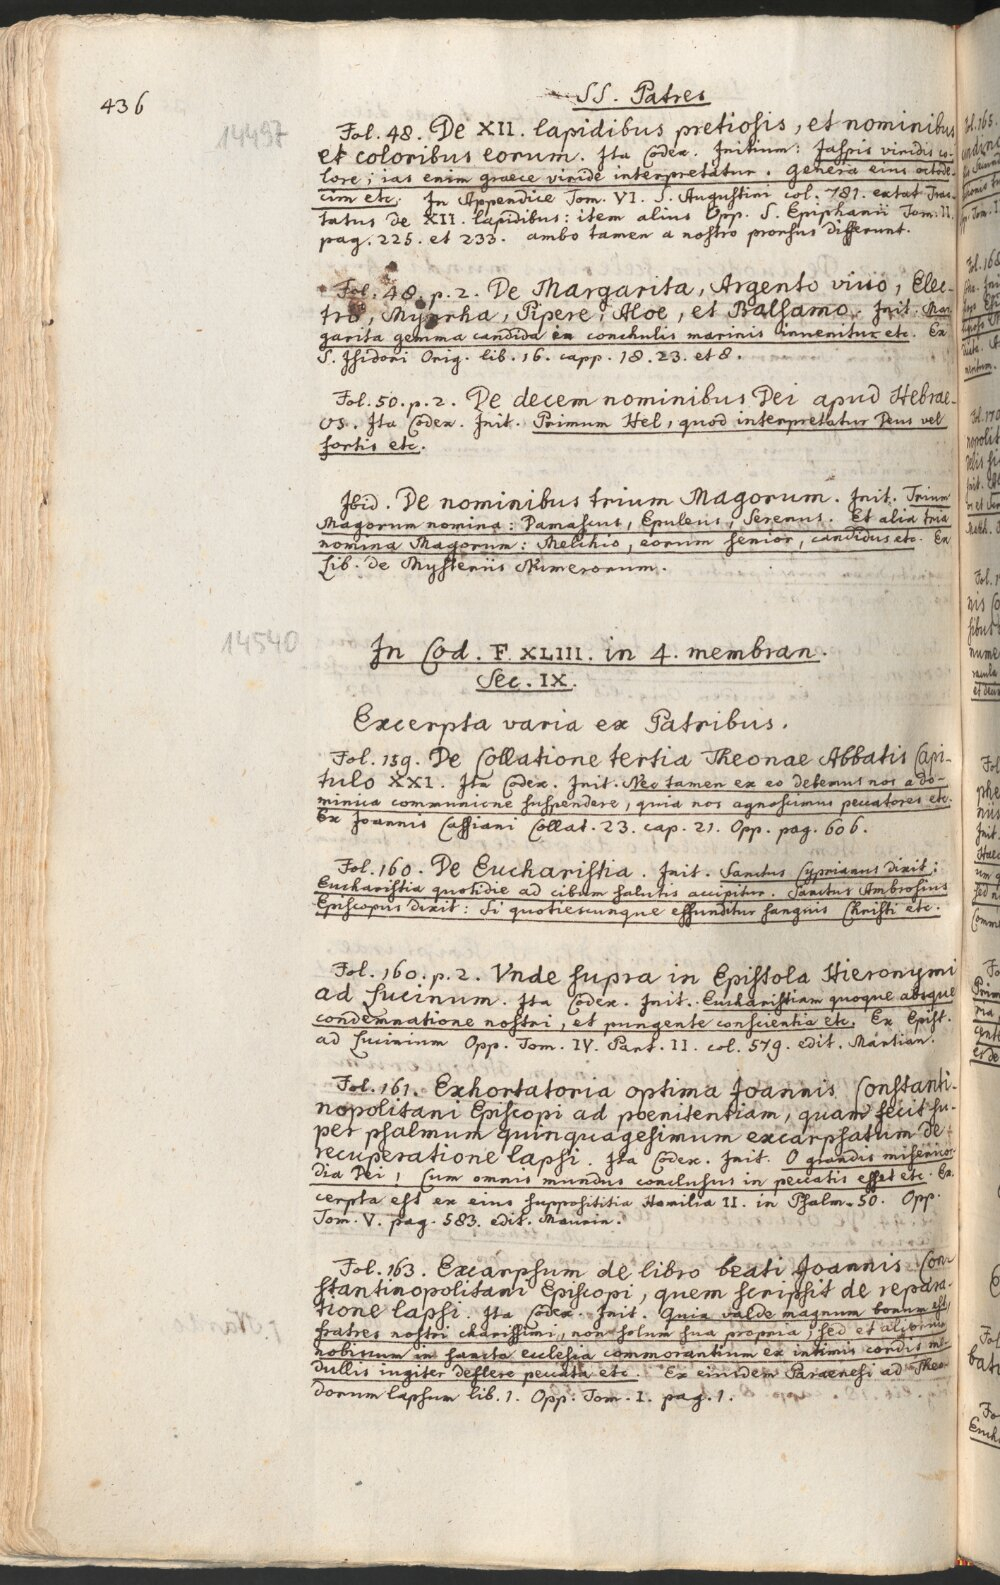 436
SS. Patres
14497
Fol. 48. De XII. lapidibus pretiosis, et nominibus
et coloribus eorum. Ita Codex. Initium: Jaspis viridis co-
lore; ias enim graece viride interpretatur. Genera eius octode-
cim etc. In Appendice Tom. VI. S. Augustini col. 781. extat Trac-
tatus de XII. lapidibus: item alius Opp. S. Epiphanii Tom. II.
pag. 225. et 233. ambo tamen a nostro prorsus differunt.
Fol. 48. p. 2. De Margarita, Argento vivo, Elec-
tro, Myrrha, Pipere, Aloe, et Balsamo. Init. Mar-
garita gemma candida in conchulis marinis invenitur etc. Ex
S. Isidori Orig. lib. 16. capp. 18. 23. et 8.
Fol. 50. p. 2. De decem nominibus Dei apud Hebrae-
os. Ita Codex. Init. Primum Hel, quod interpretatur Deus vel
fortis etc.
Ibid. De nominibus trium Magorum. Init. Trium
Magorum nomina: Damascus, Epuleus, Serenus. Et alia tria
nomina Magorum: Melchio, eorum senior, candidus etc. Ex
Lib. de Mysteriis Numerorum.
14540
In Cod. F. XLIII. in 4. membran.
Sec. IX.
Excerpta varia ex Patribus.
Fol. 159. De Collatione tertia Theonae Abbatis Capi-
tulo XXI. Ita Codex. Init. Nec tamen ex eo debemus nos a do-
minica communione suspendere, quia nos agnoscimus peccatores etc.
Ex Joannis Cassiani Collat. 23. cap. 21. Opp. pag. 606.
Fol. 160. De Eucharistia. Init. Sanctus Cyprianus dixit:
Eucharistia quotidie ad cibum salutis accipitur. Sanctus Ambrosius
Episcopus dixit: Si quotiescunque effunditur sanguis Christi etc.
Fol. 160. p. 2. Vnde supra in Epistola Hieronymi
ad Lucinum. Ita Codex. Init. Eucharistiam quoque absque
condemnatione nostri, et pungente conscientia etc. Ex Epist.
ad Lucinium Opp. Tom. IV. Part. II. col. 579. edit. Martian.
Fol. 161. Exhortatoria optima Joannis Constanti-
nopolitani Episcopi ad poenitentiam, quam fecit su-
per psalmum quinquagesimum excarpsatum de
recuperatione lapsi. Ita Codex. Init. O grandis misericor-
dia Dei, Cum omnis mundus conclusus in peccatis esset etc. Ex-
cerpta est ex eius supposititia Homilia II. in Psalm. 50. Opp.
Tom. V. pag. 583. edit. Maurin.
Fol. 163. Excarpsum de libro beati Joannis Con-
stantinopolitani Episcopi, quem scripsit de repara-
tione lapsi. Ita Codex. Init. Quia valde magnum bonum est,
fratres nostri charissimi, non solum sua propria, sed et aliorum
nobiscum in sancta ecclesia commorantium ex intimis cordis me-
dullis iugiter deflere peccata etc. Ex eiusdem Paraenesi ad Theo-
dorum lapsum lib. 1. Opp. Tom. I. pag. 1.